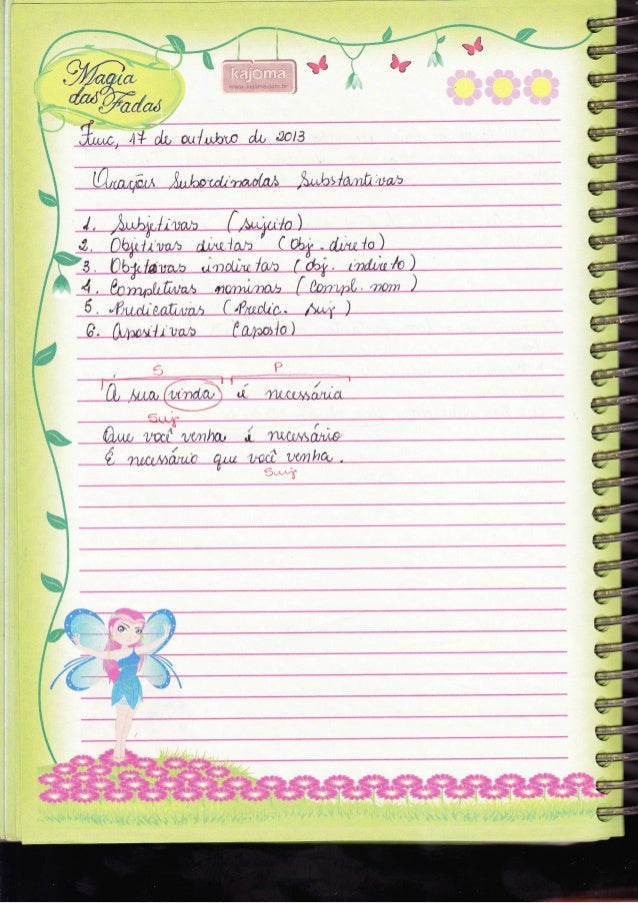 Magia
das Fadas
kajoma
www.kajoma.com.br
17 de outubro de 2013
Orações Subordinadas Substantivas
1. Subjetivas (sujeito)
2. Objetivas diretas (Obj. direto)
3. Objetivas indiretas (obj. indireto)
4. Completivas nominas (Compl. nom)
5. Predicativas (Predic. suj)
6. Apositivas (aposto)
S P
A sua vinda é necessária
Suj
Que você venha é necessário
É necessário que você venha.
Suj